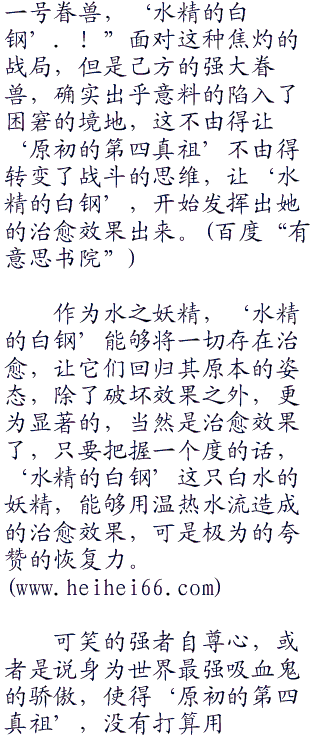 一号眷兽，‘水精的白
钢’．！”面对这种焦灼的
战局，但是己方的强大眷
兽，确实出乎意料的陷入了
困窘的境地，这不由得让
‘原初的第四真祖’不由得
转变了战斗的思维，让‘水
精的白钢’，开始发挥出她
的治愈效果出来。(百度“有
意思书院”)
作为水之妖精，‘水精
的白钢’能够将一切存在治
愈，让它们回归其原本的姿
态，除了破坏效果之外，更
为显著的，当然是治愈效果
了，只要把握一个度的话，
‘水精的白钢’这只白水的
妖精，能够用温热水流造成
的治愈效果，可是极为的夸
赞的恢复力。
(www.heihei66.com)
可笑的强者自尊心，或
者是说身为世界最强吸血鬼
的骄傲，使得‘原初的第四
真祖’，没有打算用